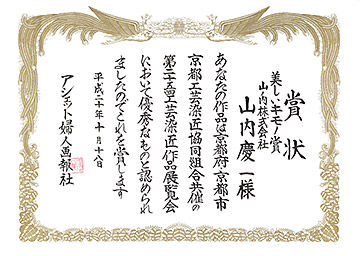 賞状
美しいキモノ賞
山内株式会社
山内慶一様
あなたの作品は京都府・京都市
京都工芸染匠協同組合共催の
第二十五回工芸染匠作品展覧会
において優秀なものと認められ
ましたのでこれを賞します
平成二十年十月十八日
アシェット婦人画報社